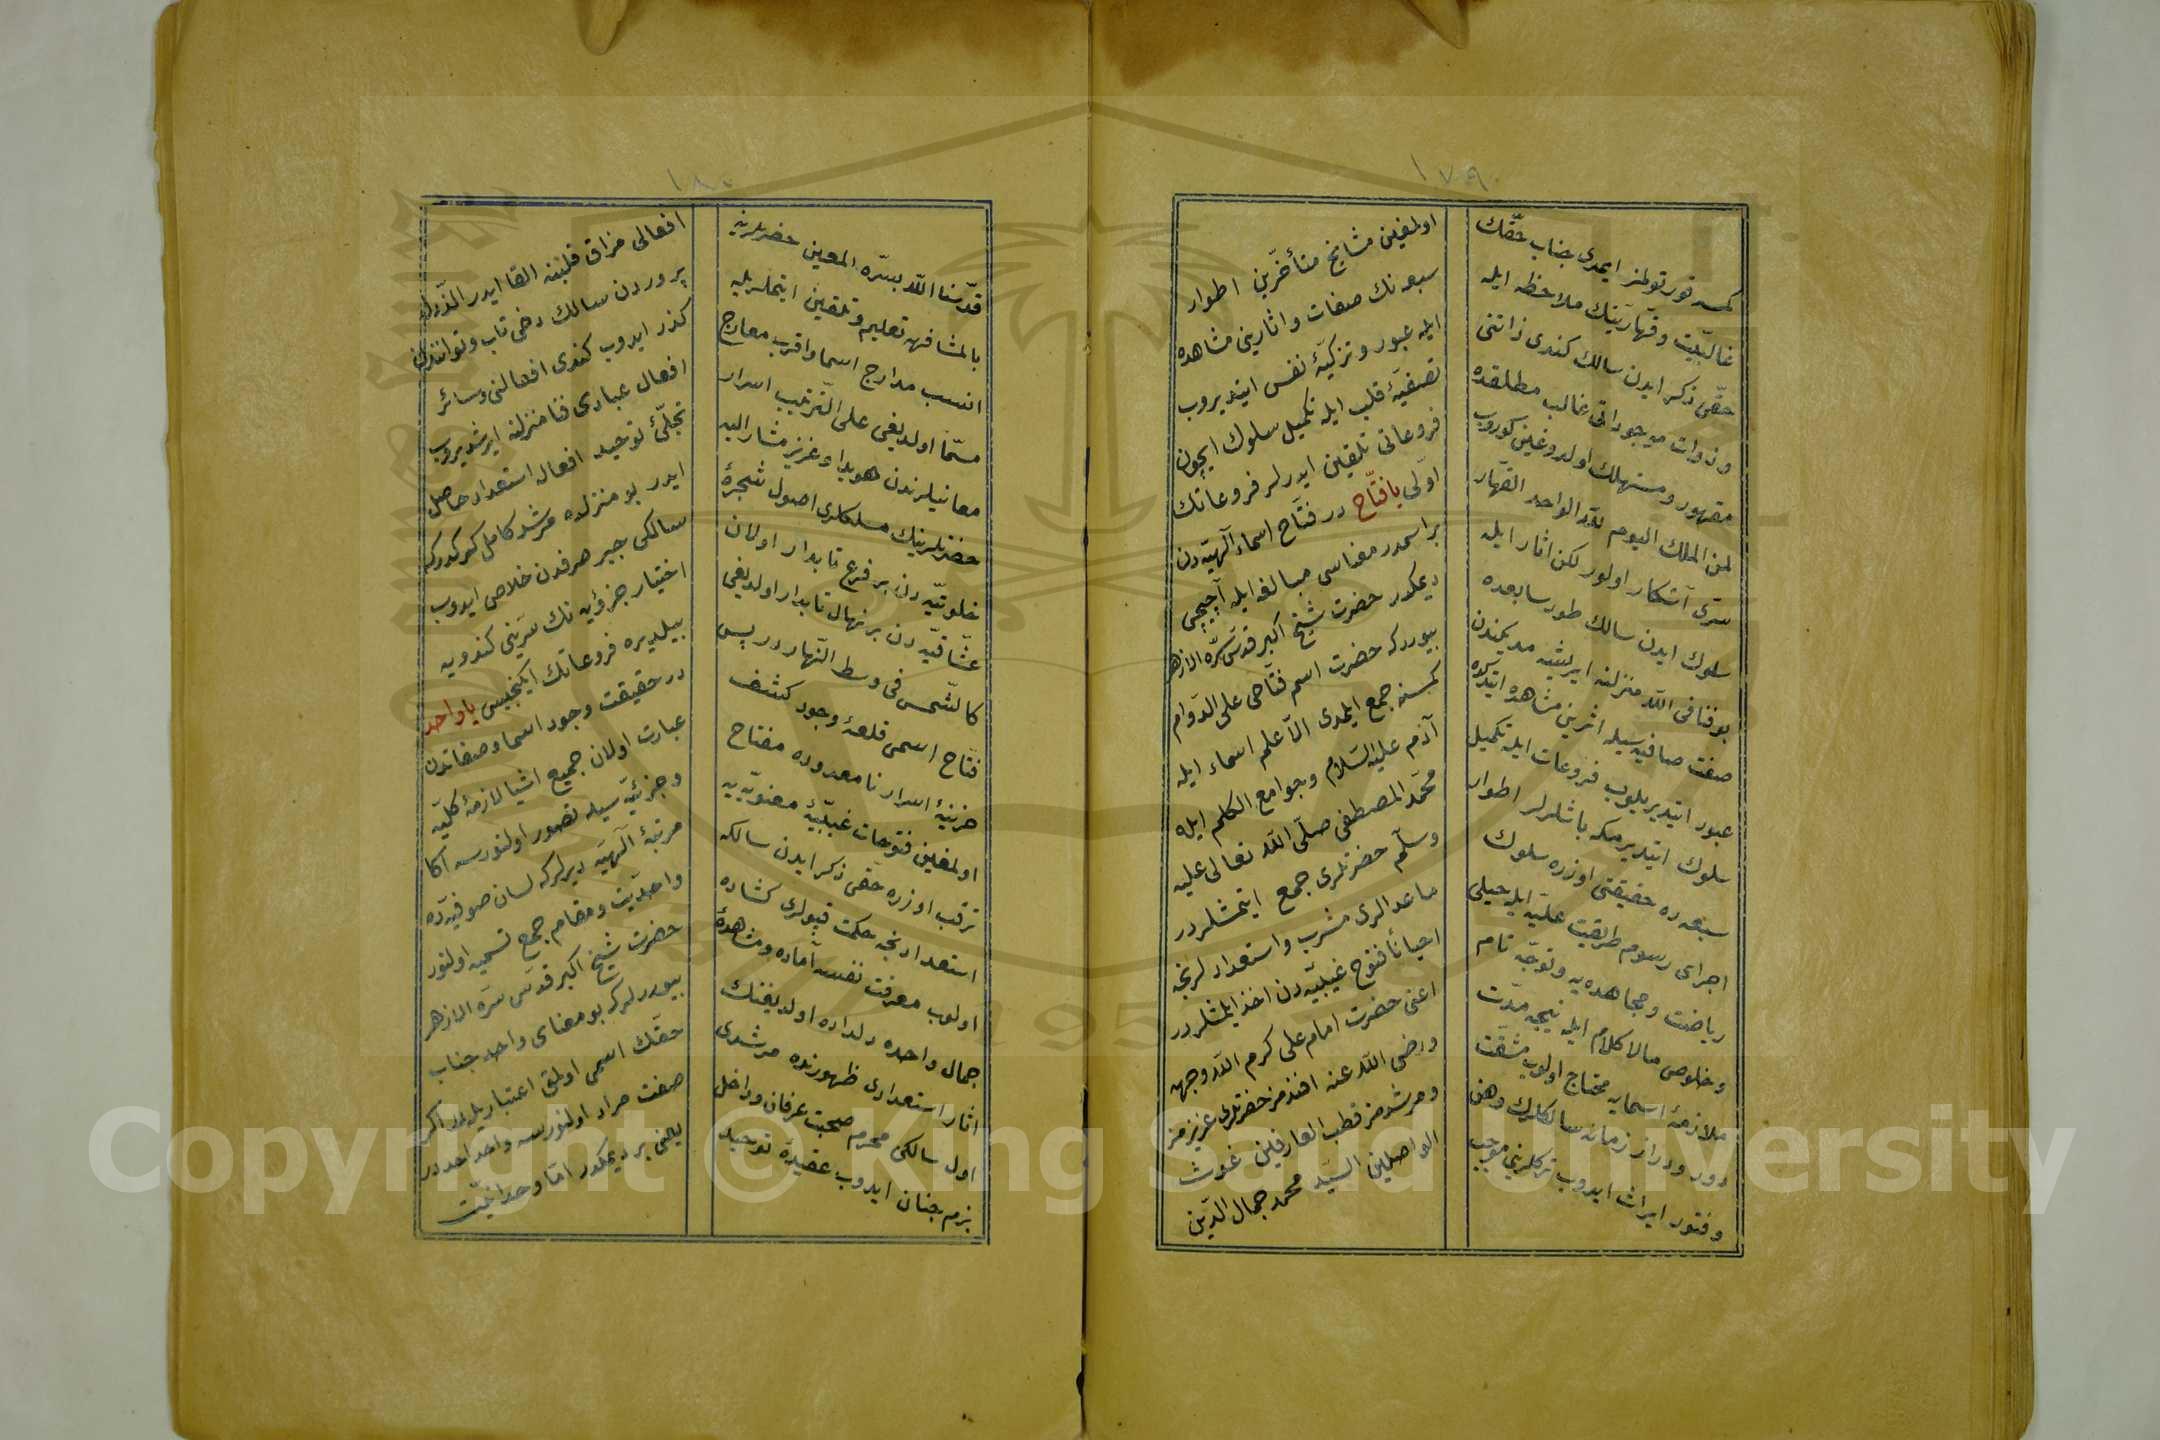 ١٧٩
كمسه نور تولمنز ايمدى جناب حقّك
غالبيّت وقهّاريّتنك ملاحظه ايله
حقّى ذكر ايدن سالك كندى ذاتنى
وذوات موجوداتى غالب مطلقده
مقهور ومستهلك اولدوغين كوروب
لمن الملك اليوم لله الواحد القهّار
سرّى آشكار اولور لكن اثار ايله
سلوك ايدن سالك طور سابعده
بو فنا فى اللّه منزلنه ايريشه مديكندن
صفت صافيه سيله اثرينى مشاهده ايتدكده
عبور ايتديريلوب فروعات ايله تكميل
سلوك ايتديرمكه باشلرلر اطوار
سبعه ده حقيقتى اوزره سلوك
اجراى رسوم طريقت عليّه ايله حيلى
رياضت ومجاهده يه وتوجّه تام
وخلوص مالا كلام ايله نيجه مدّت
ملازمۀ اسمايه محتاج اولوب مشقّت
دور ودراز زمانه سالكلرك وهن
وفتور ايراث ايدوب تركلرينى موجب
اولمغين مشايخ متأخّرين اطوار
سبعه نك صفات واثارينى مشاهده
ايله عبور وتزكيۀ نفس ايتديروب
تصفيۀ قلب ايله تكميل سلوك ايچون
فروعاتى تلقين ايدرلر فروعاتك
اوّلى يا فتّاح در فتّاح اسماء الٓهيّه دن
بر اسمدر معناسى مبالغه ايله آچيجى
ديمكدر حضرت شيخ اكبر قدّس سرّه الازهر
بيوردكه حضرت اسم فتّاحى على الدّوام
كمسنه جمع ايلمدى الّا علم اسماء ايله
آدم عليه السّلام وجوامع الكلم ايله
محمّد المصطفى صلّى اللّه تعالى عليه
وسلّم حضرتلرى جمع ايتمشلردر
ماعدالرى مشرب واستعدادلرنجه
احيانًا فتوح غيبيّه دن اخذ ايلمشلردر
اعنى حضرت امام على كرم اللّه وجهه
ورضى اللّه عنه افندمز حضرتلرى عزيزمز
ومرشدمز قطب العارفين غوث
الواصلين السّيد محمد جمال الدّين
١٨٠
قدّسنا اللّه بسرّه المعين حضرتلرينه
بالمشافهه تعليم وتلقين ايتملريله
انسب مدارج اسما واقرب معارج
مسمّا اولديغى على التّرتيب اسرار
معانيلرندن هويدا وعزيز مشار اليه
حضرتلرينك مسلكلرى اصول شجرۀ
خلوتيّه دن بر فرع تابدار اولان
عشّاقيّه دن بر نهال تابدار اولديغى
كالشّمس فى وسط النّهاردر پس
فتّاح اسمى قلعۀ وجود كشف
خزينۀ اسرار نامعدوده مفتاح
اولمغين فتوحات غيبيّۀ معنويّه يه
ترقّب اوزره حقّى ذكر ايدن سالكه
استعدادنجه حكمت قپولرى كشاده
اولوب معرفت نفسه آماده ومشاهدۀ
جمال واحده دلداده اولديغنك
اثار استعدادى ظهورنده مرشدى
اول سالكى محرم صحبت عرفان وداخل
بزم جنان ايدوب عقيدۀ توحيد
افعالى مزاق قلبنه القا ايدر المذ
پروردن سالك دخى تاب وتوانندن
كذر ايدوب كندى افعالنى وسائر
افعال عبادى فنا منزلنه ايرشديروب
تجلّئ توحيد افعاله استعداد حاصل
ايدر بو منزلده مرشد كامل كركدركه
سالكى جبر صرفدن خلاص ايدوب
اختيار جزؤيه نك سرّينى كندويه
بيلديره فروعاتك ايكنجيسى يا واحد
در حقيقت وجود اسما وصفاتدن
عبارت اولان جميع اشيا لازمۀ كليّه
وجزئيّه سيله تصور اولنورسه اكا
مرتبۀ الٓهيّه ديرلركه لسان صوفيّه ده
واحديّت ومقام جمع تسميه اولنور
حضرت شيخ اكبر قدّس سرّه الازهر
بيوردلركه بو معناى واحد جناب
حقّك اسمى اولمق اعتباريله در اكر
صفت مراد اولنورسه واحد احددر
يعنى بر ديمكدر امّا وحدانيّت